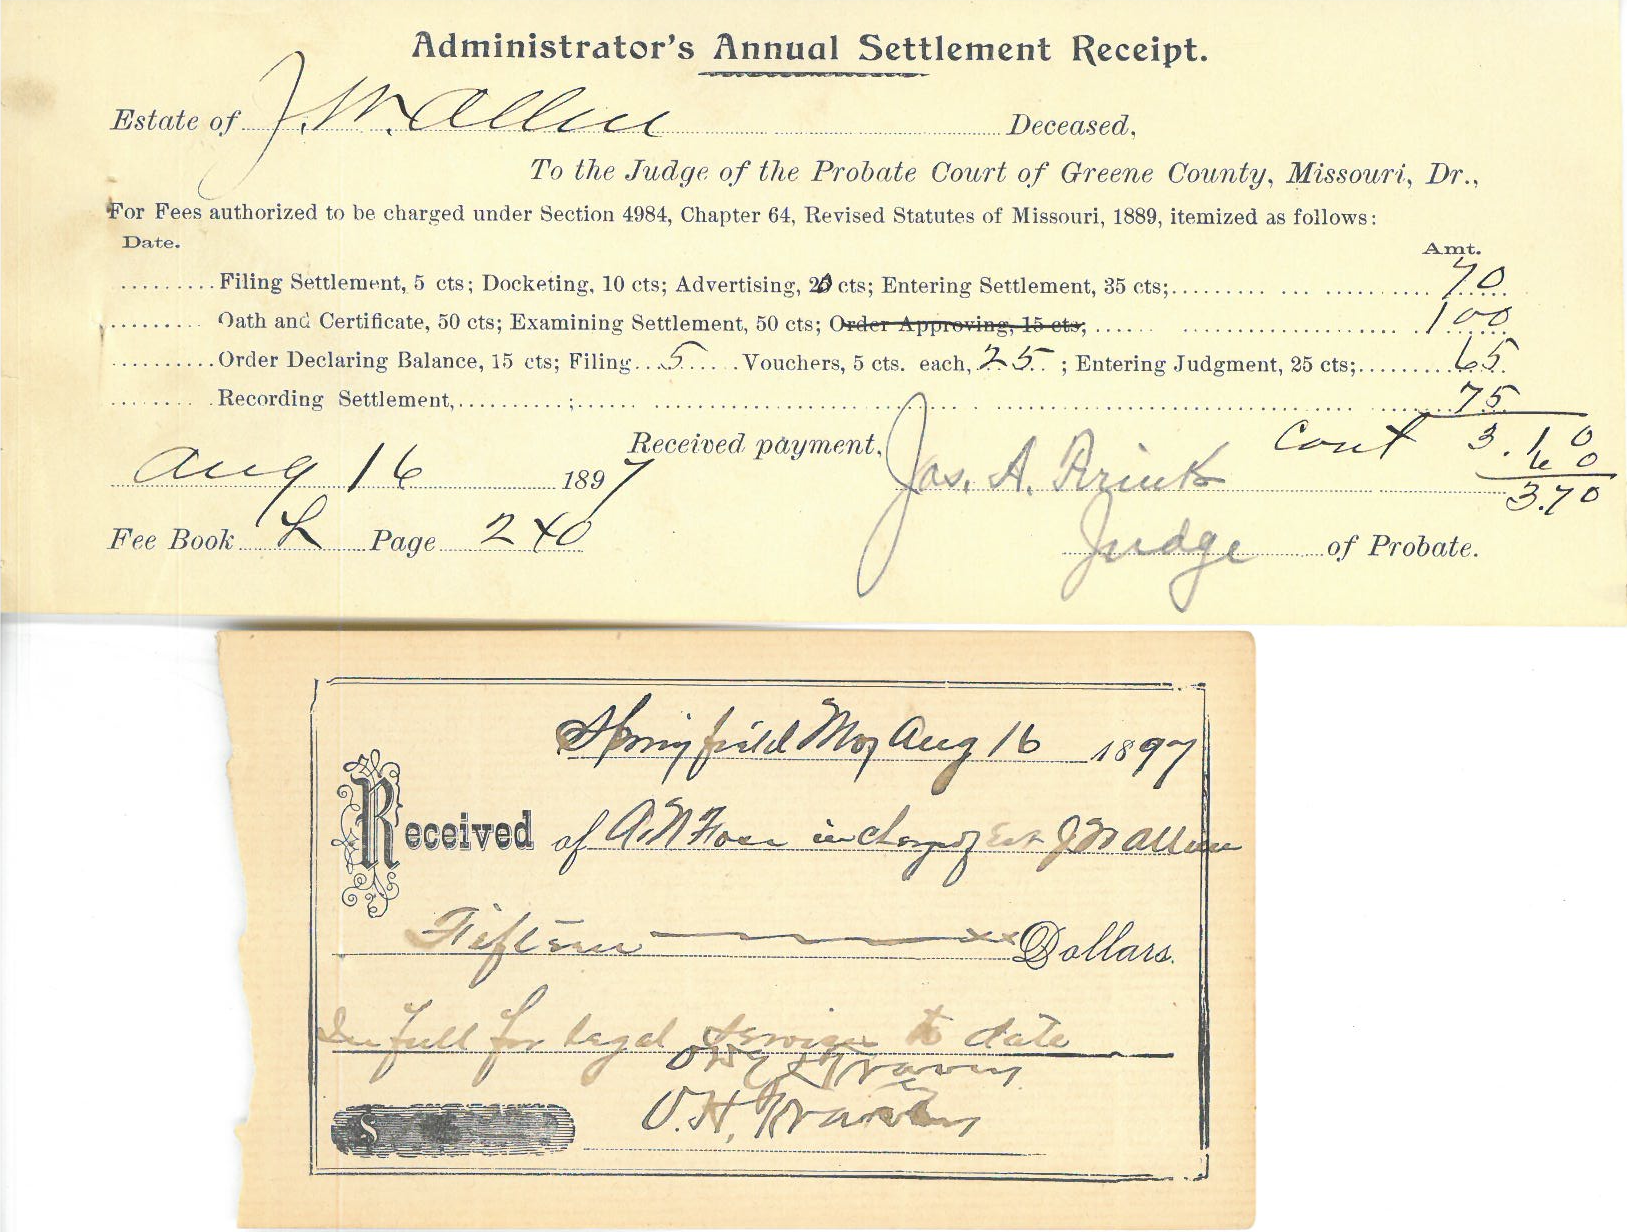 Administrator's Annual Settlement Receipt.
Estate of J. W. Allen Deceased,
To the Judge of the Probate Court of Greene County, Missouri, Dr.,
For Fees authorized to be charged under Section 4984, Chapter 64, Revised Statutes of Missouri, 1889, itemized as follows:
Date. Amt.
Filing Settlement, 5 cts; Docketing, 10 cts; Advertising, 20 cts; Entering Settlement, 35 cts; 70
Oath and Certificate, 50 cts; Examining Settlement, 50 cts; Order Approving, 15 cts; 100
Order Declaring Balance, 15 cts; Filing 5 Vouchers, 5 cts. each, 25 ; Entering Judgment, 25 cts; 65
Recording Settlement, ; 75
Received payment, Cont 3.10
60
Aug 16 1897 Jas. A. 3.70
Fee Book L Page 240 Judge of Probate.
Springfield Mo Aug 16 1897
Received of in charge of Est J W Allen
Fifteen xx Dollars.
In full for legal services to date
O. H. Travers
$